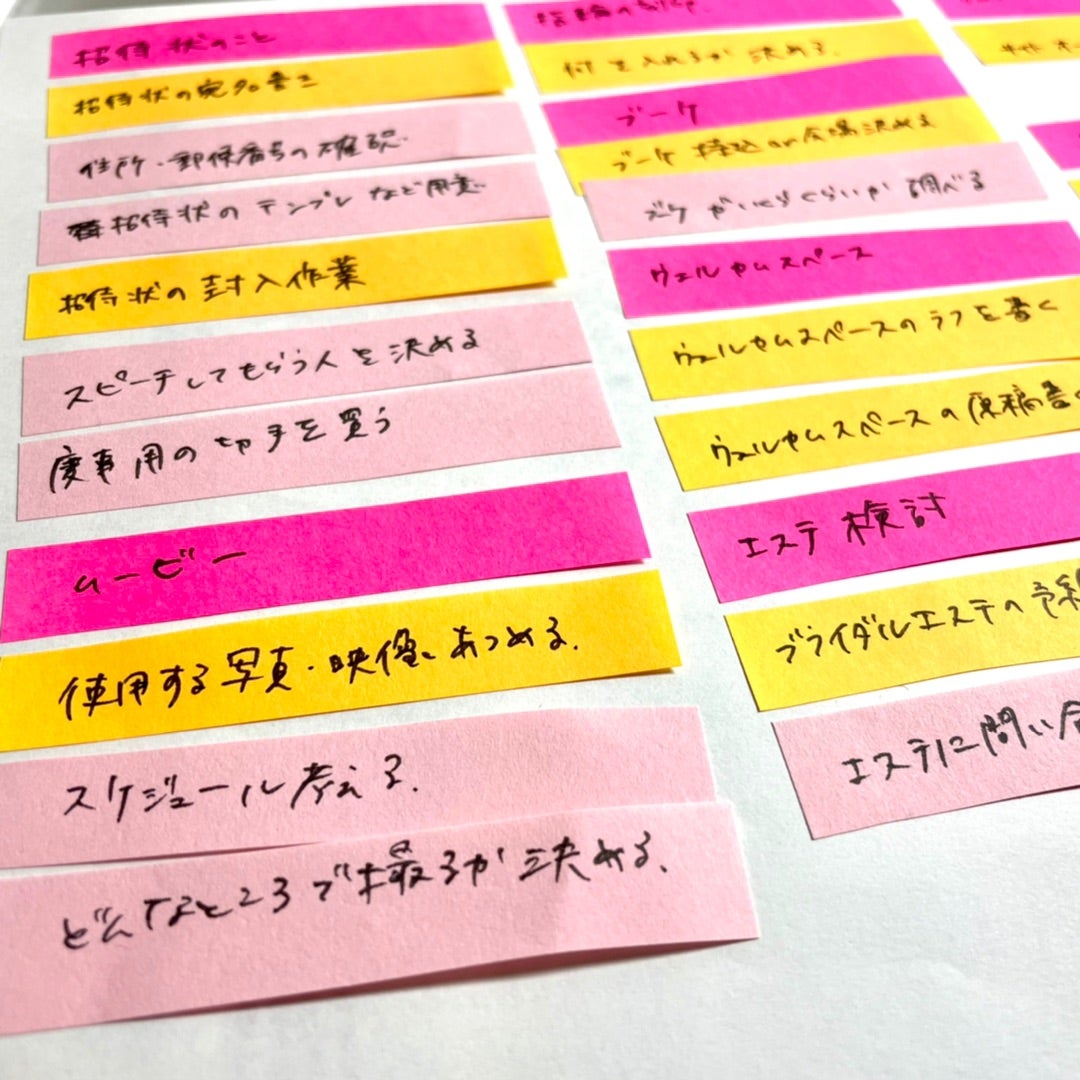 招待状のこと
招待状の宛名書き
住所・郵便番号の確認
招待状のテンプレなど用意
招待状の封入作業
スピーチしてもらう人を決める
慶事用の切手を買う
ムービー
使用する写真・映像あつめる.
スケジュール考える.
どんなところで撮るか決める.
指輪の
何を入れるか決める.
ブーケ
ブーケ持込or会場決める
ブーケがいくらくらいか調べる
ウェルカムスペース
ウェルカムスペースのラフを書く
ウェルカムスペースの原稿書
エステ検討
ブライダルエステの予
エステに問い合